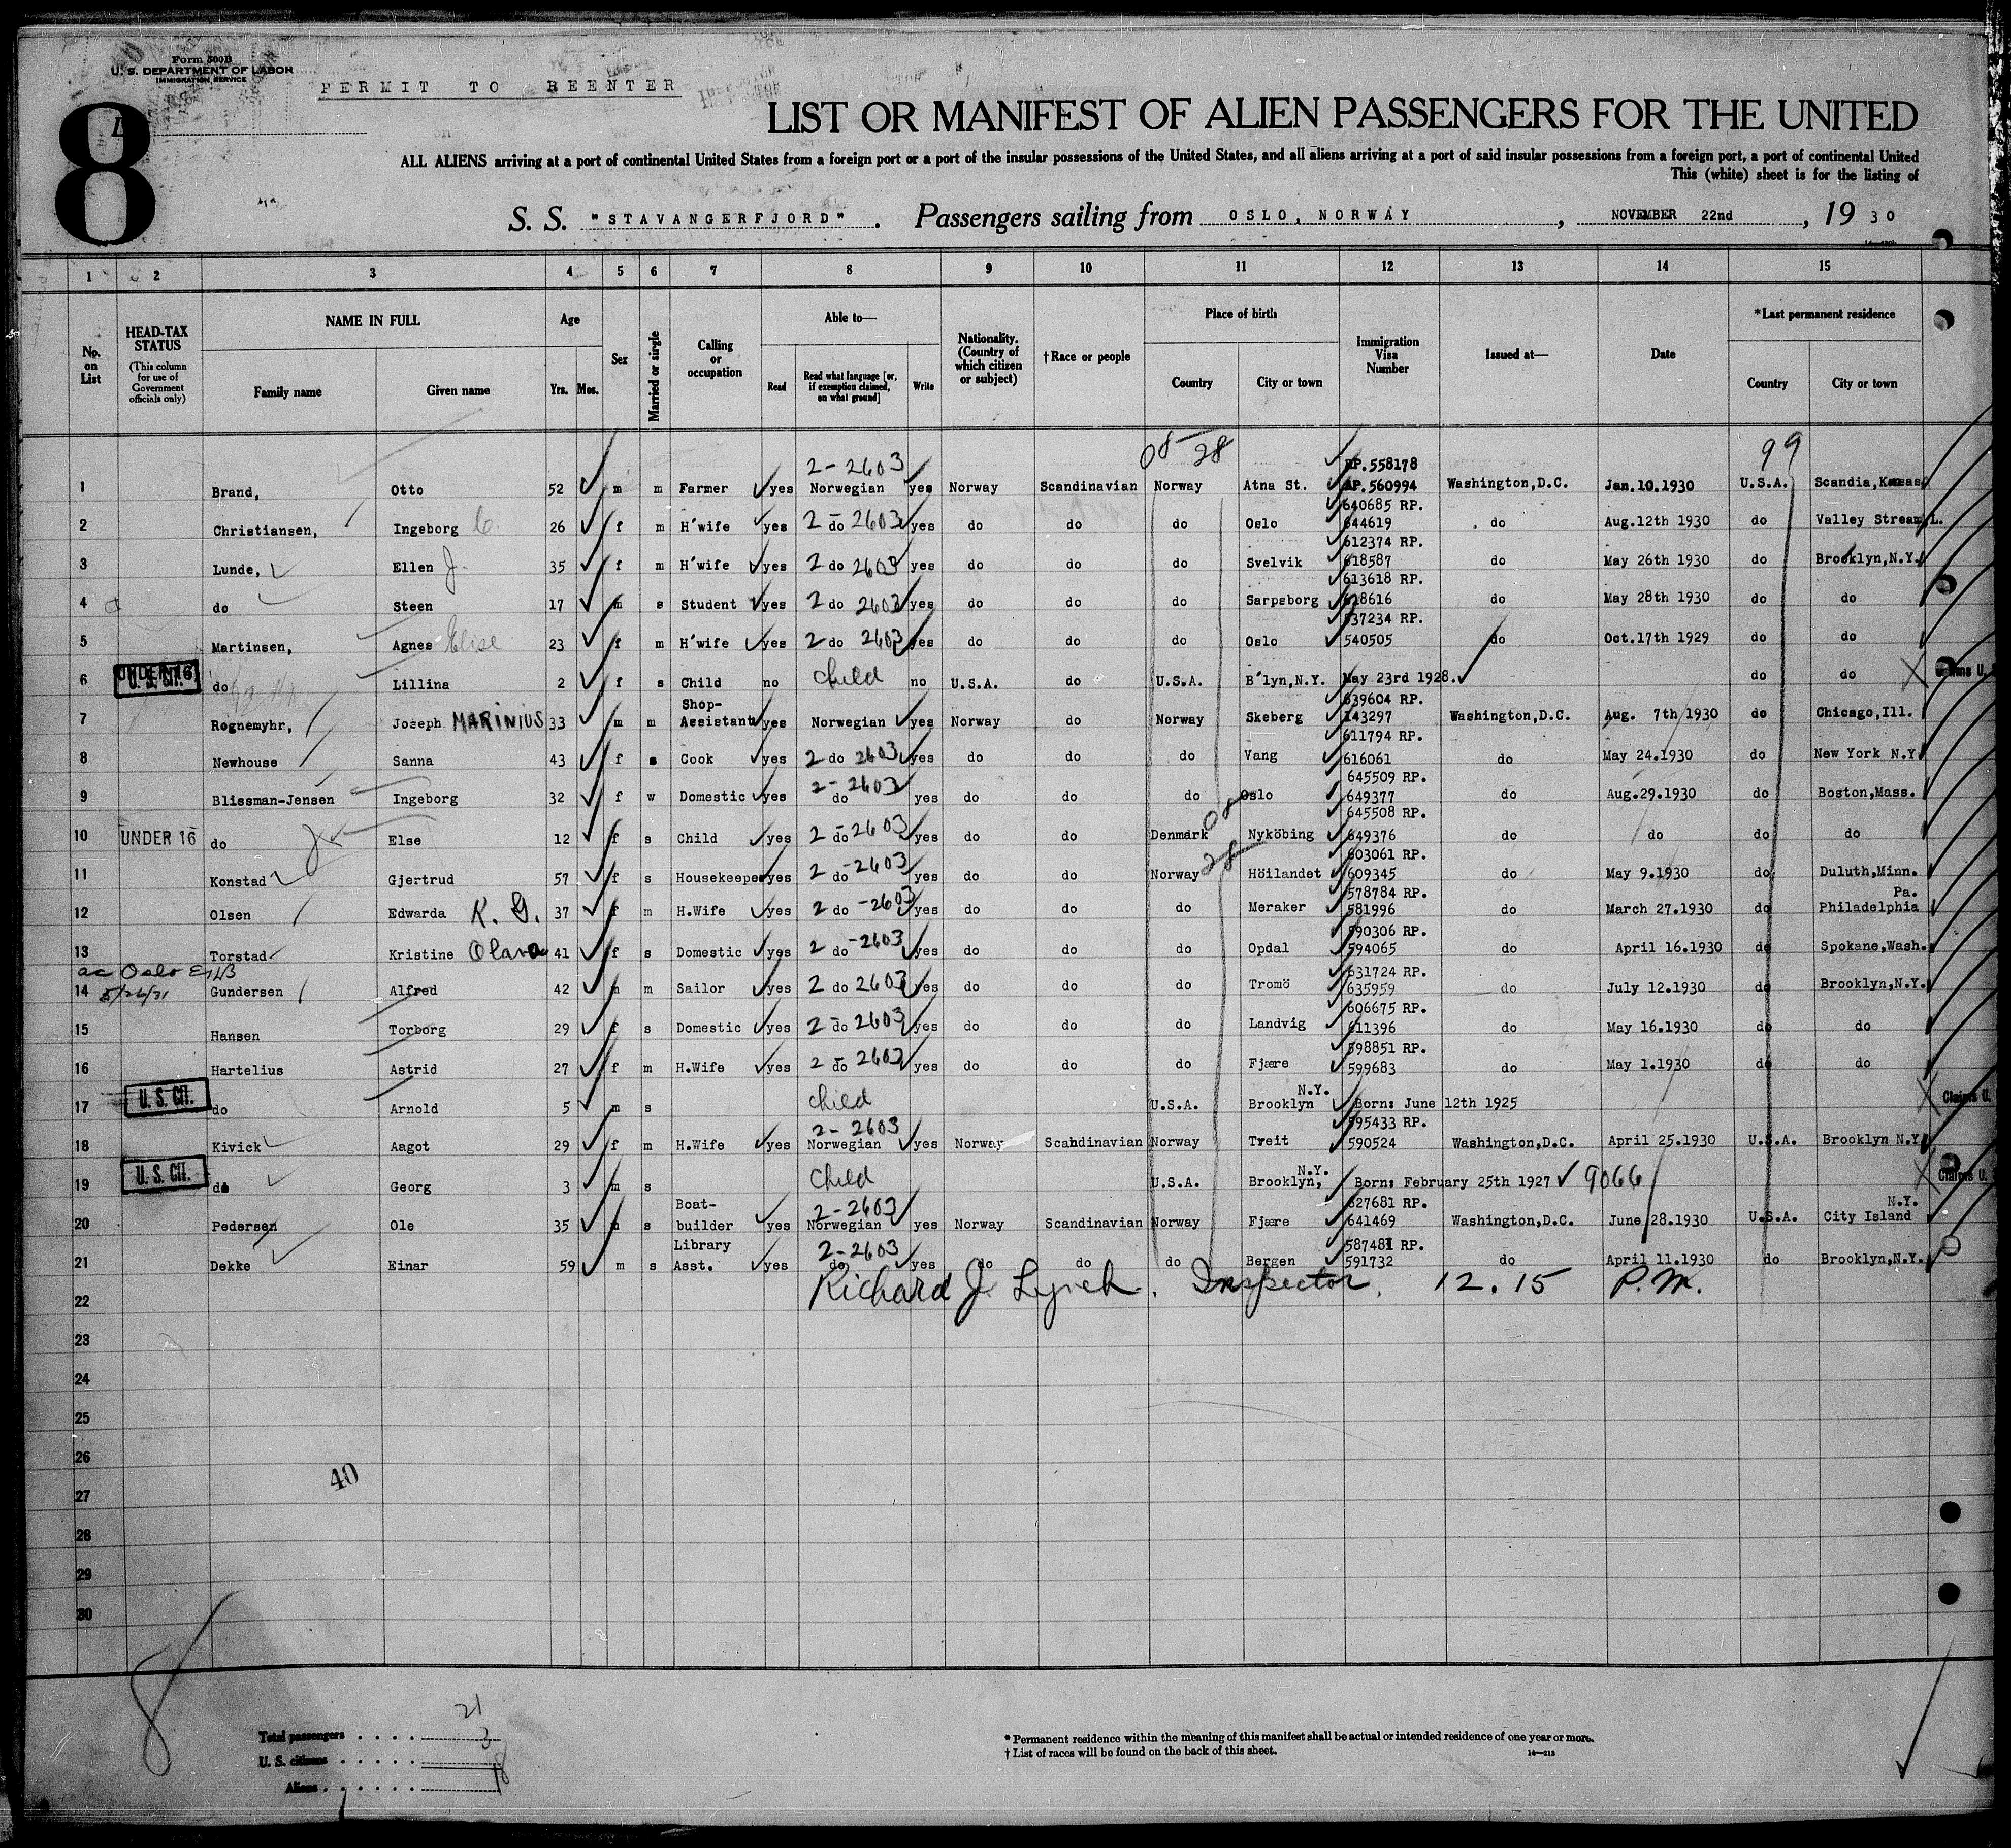 Form 500B
U. S. DEPARTMENT OF LABOR
IMMIGRATION SERVICE
PERMIT TO REENTER
8
LIST OR MANIFEST OF ALIEN PASSENGERS FOR THE UNITED
ALL ALIENS arriving at a port of continental United States from a foreign port or a port of the insular possessions of the United States, and all aliens arriving at a port of said insular possessions from a foreign port, a port of continental United
This (white) sheet is for the listing of
S. S. "STAVANGERFJORD". Passengers sailing from OSLO, NORWAY, NOVEMBER 22nd, 1930
1 2 3 4 5 6 7 8 9 10 11 12 13 14 15
No. on List
HEAD-TAX STATUS (This column for use of Government officials only)
NAME IN FULL Family name Given name
Age Yrs. Mos.
Sex
Married or single
Calling or occupation
Able to— Read Read what language [or, if exemption claimed, on what ground] Write
Nationality. (Country of which citizen or subject)
†Race or people
Place of birth Country City or town
Immigration Visa Number
Issued at—
Date
*Last permanent residence Country City or town
05 28 99
2-2603 RP.558178
1 Brand, Otto 52 m m Farmer yes Norwegian yes Norway Scandinavian Norway Atna St. AP.560994 Washington,D.C. Jan.10.1930 U.S.A. Scandia,Kansas
640685 RP.
2 Christiansen, Ingeborg C. 26 f m H'wife yes 2 do 2603 yes do do do Oslo 644619 do Aug.12th 1930 do Valley Stream,L.
612374 RP.
3 Lunde, Ellen J. 35 f m H'wife yes 2 do 2603 yes do do do Svelvik 618587 do May 26th 1930 do Brooklyn,N.Y.
613618 RP.
4 do Steen 17 m s Student yes 2 do 2603 yes do do do Sarpsborg 618616 do May 28th 1930 do do
537234 RP.
5 Martinsen, Agnes Elise 23 f m H'wife yes 2 do 2603 yes do do do Oslo 540505 do Oct.17th 1929 do do
6 UNDER 16 U. S. CIT. do Lillina 2 f s Child no child no U.S.A. do U.S.A. B'lyn,N.Y. May 23rd 1928. do do X Claims U. S.
Shop- 639604 RP.
7 Rognemyhr, Joseph MARINIUS 33 m m Assistant yes Norwegian yes Norway do Norway Skeberg 143297 Washington,D.C. Aug. 7th 1930 do Chicago,Ill.
611794 RP.
8 Newhouse Sanna 43 f s Cook yes 2 do 2603 yes do do do Vang 616061 do May 24.1930 do New York N.Y.
2-2603 645509 RP.
9 Blissman-Jensen Ingeborg 32 f w Domestic yes do yes do do do Oslo 649377 do Aug.29.1930 do Boston,Mass.
08 645508 RP.
10 UNDER 16 do Else 12 f s Child yes 2 do-2603 yes do do Denmark Nyköbing 649376 do do do do
28 603061 RP.
11 Konstad Gjertrud 57 f s Housekeeper yes 2 do-2603 yes do do Norway Höilandet 609345 do May 9.1930 do Duluth,Minn.
578784 RP. Pa.
12 Olsen Edwarda K. G. 37 f m H.Wife yes 2 do -2603 yes do do do Meraker 581996 do March 27.1930 do Philadelphia
590306 RP.
13 Torstad Kristine Olava 41 f s Domestic yes 2 do-2603 yes do do do Opdal 594065 do April 16.1930 do Spokane,Wash.
ac Oslo 631724 RP.
14 5/26/31 Gundersen Alfred 42 m m Sailor yes 2 do 2603 yes do do do Tromö 635959 do July 12.1930 do Brooklyn,N.Y.
606675 RP.
15 Hansen Torborg 29 f s Domestic yes 2 do 2603 yes do do do Landvig 611396 do May 16.1930 do do
598851 RP.
16 Hartelius Astrid 27 f m H.Wife yes 2 do 2603 yes do do do Fjære 599683 do May 1.1930 do do
N.Y.
17 U. S. CIT. do Arnold 5 m s child U.S.A. Brooklyn Born: June 12th 1925 X Claims U.
2-2603 595433 RP.
18 Kivick Aagot 29 f m H.Wife yes Norwegian yes Norway Scandinavian Norway Treit 590524 Washington,D.C. April 25.1930 U.S.A. Brooklyn N.Y.
N.Y.
19 U. S. CIT. do Georg 3 m s Child U.S.A. Brooklyn, Born: February 25th 1927 9066 X Claims U.
Boat- 2-2603 627681 RP. N.Y.
20 Pedersen Ole 35 m s builder yes Norwegian yes Norway Scandinavian Norway Fjære 641469 Washington,D.C. June 28.1930 U.S.A. City Island
Library 2-2603 587481 RP.
21 Dekke Einar 59 m s Asst. yes do yes do do do Bergen 591732 do April 11.1930 do Brooklyn,N.Y.
Richard J. Lynch. Inspector. 12.15 P.M.
22
23
24
25
26
40
27
28
29
30
8
Total passengers . . . . 21
U. S. citizens . . . . . 3
Aliens . . . . . . 18
* Permanent residence within the meaning of this manifest shall be actual or intended residence of one year or more.
† List of races will be found on the back of this sheet. 14—213